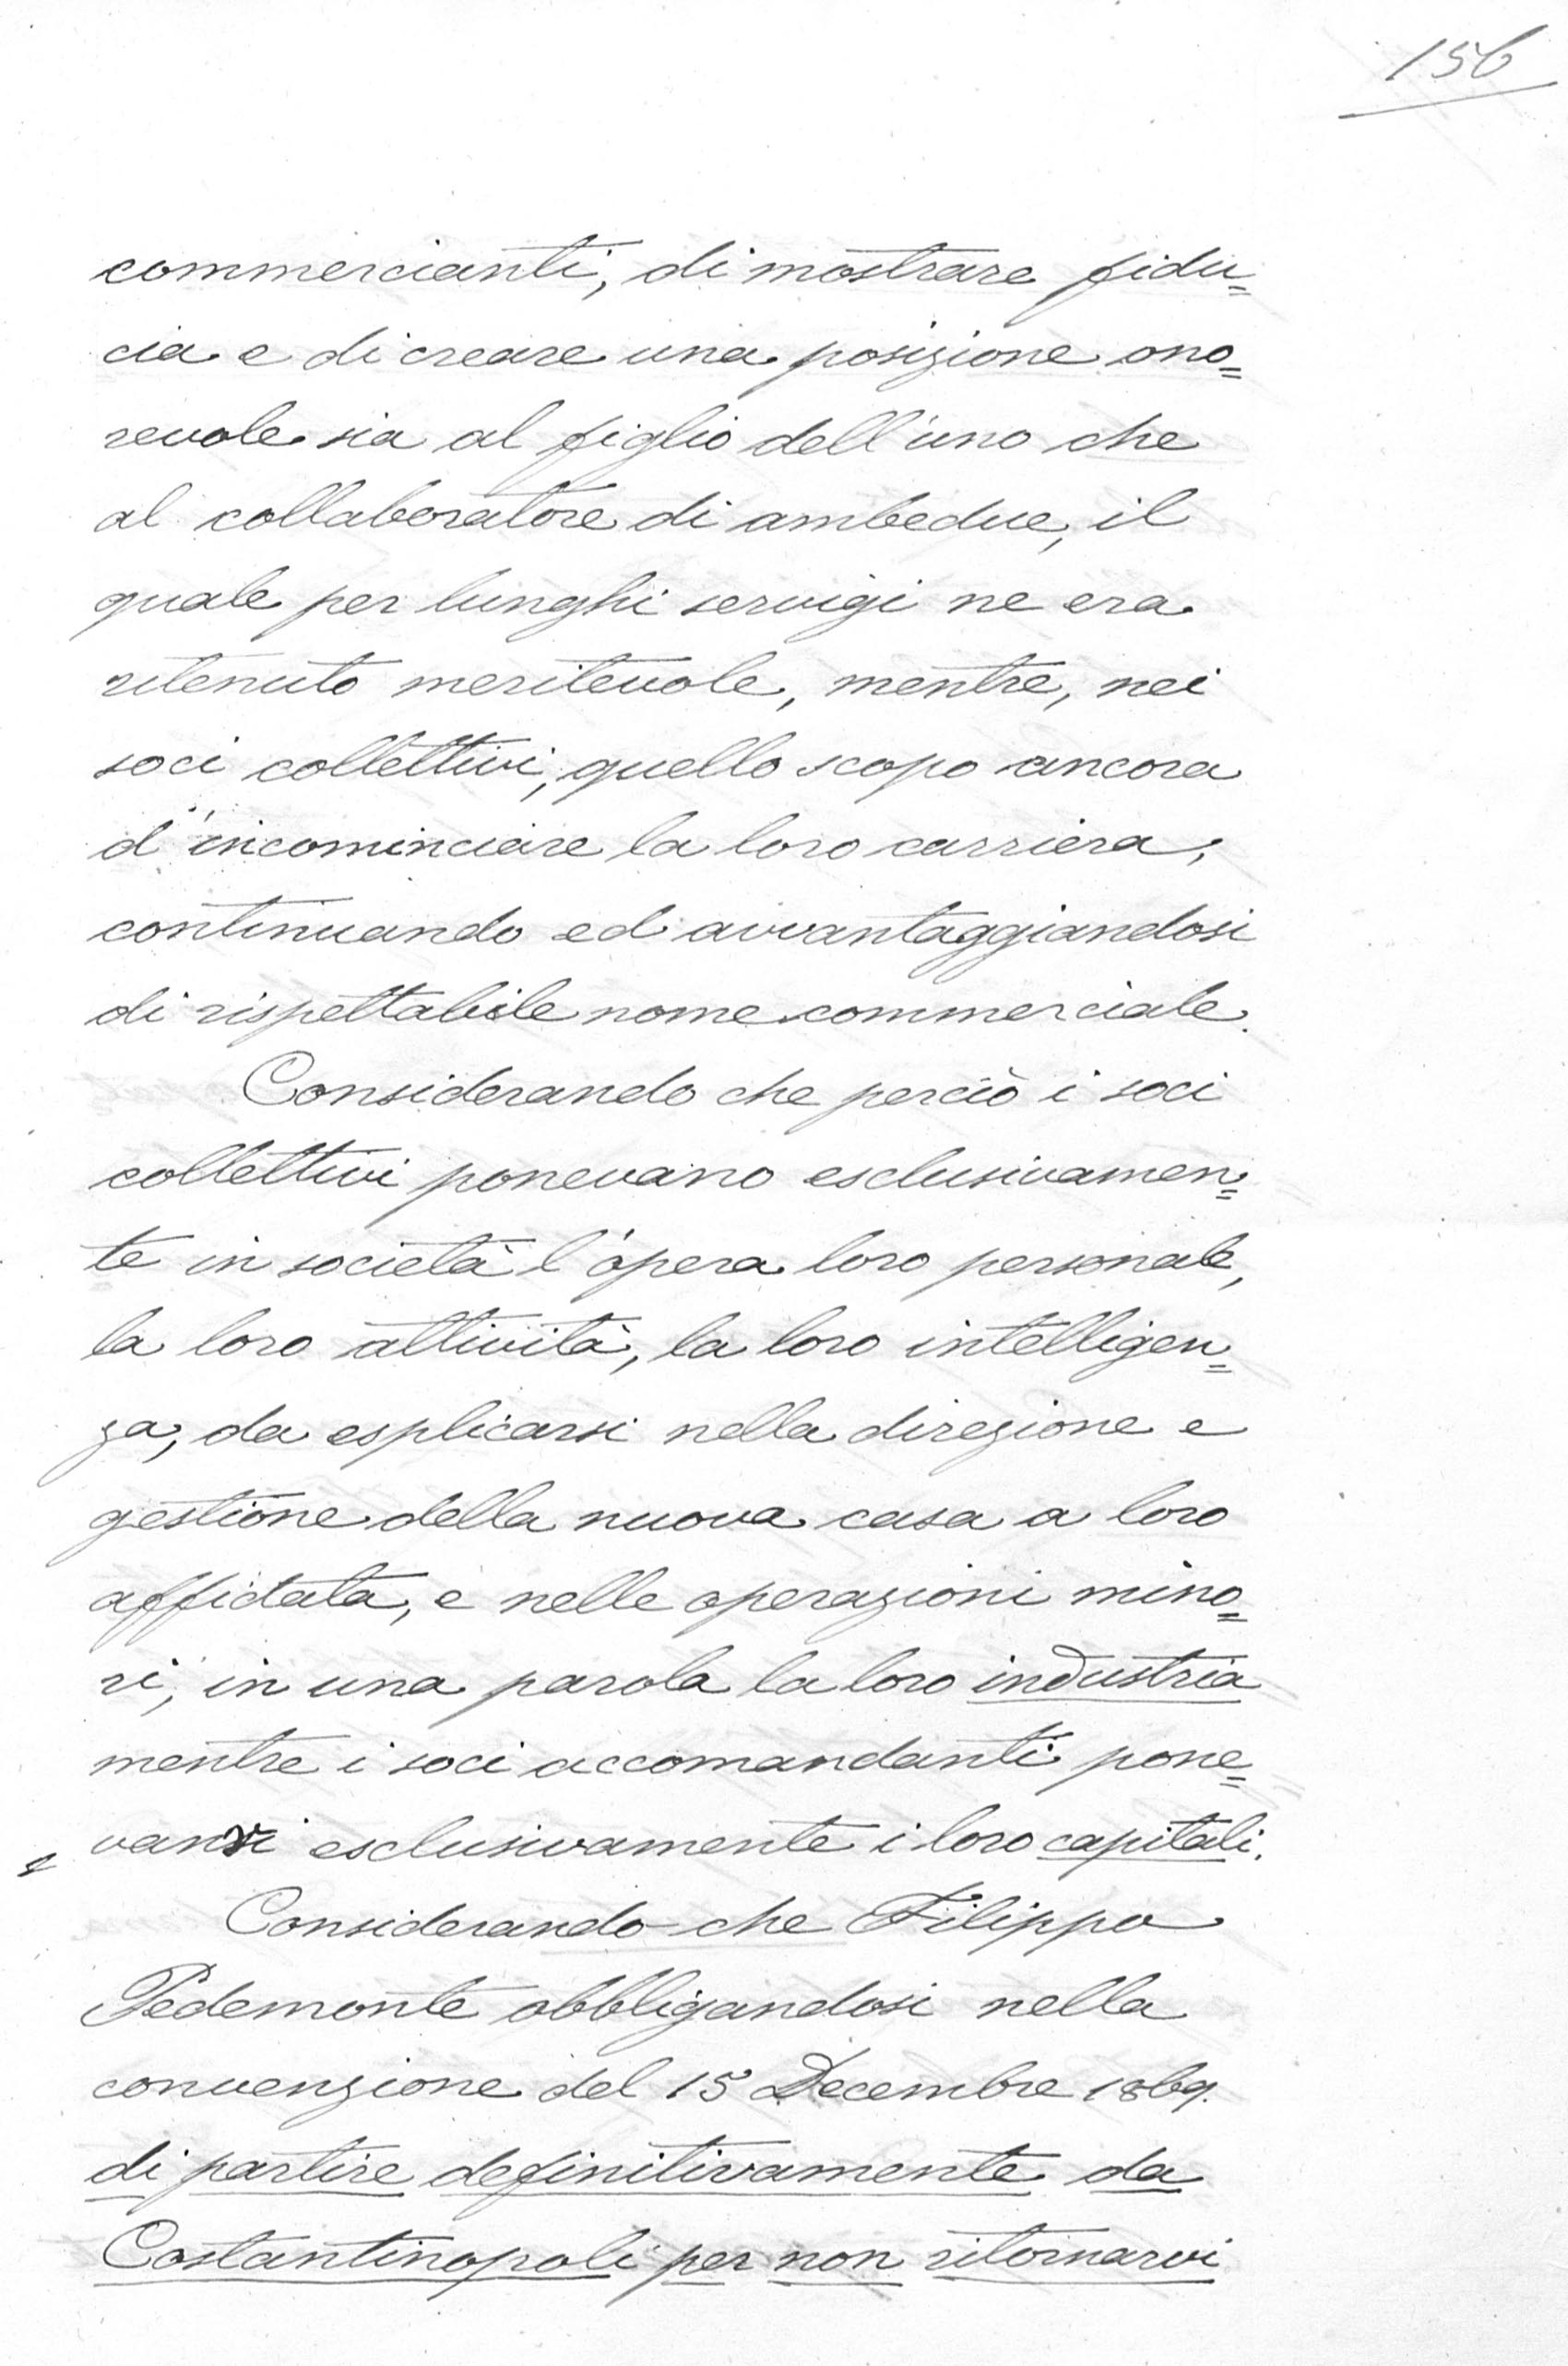 156
commercianti, di mostrare fidu=
cia e di creare una posizione ono=
revole sia al figlio dell'uno che
al collaboratore di ambedue, il
quale per lunghi servigi ne era
ritenuto meritevole, mentre, nei
soci collettivi, quello scopo ancora
d'incominciare la loro carriera,
continuando ed avvantaggiandosi
di rispettabile nome commerciale.
Considerando che perciò i soci
collettivi ponevano esclusivamen=
te in società l'opera loro personale,
la loro attività, la loro intelligen=
za, da esplicarsi nella direzione e
gestione della nuova casa a loro
affidata, e nelle operazioni mino=
ri, in una parola la loro industria
mentre i soci accomandanti pone=
vanvi esclusivamente i loro capitali.
Considerando che Filippo
Pedemonte obbligandosi nella
convenzione del 15 Decembre 1869.
di partire definitivamente da
Costantinopoli per non ritornarvi